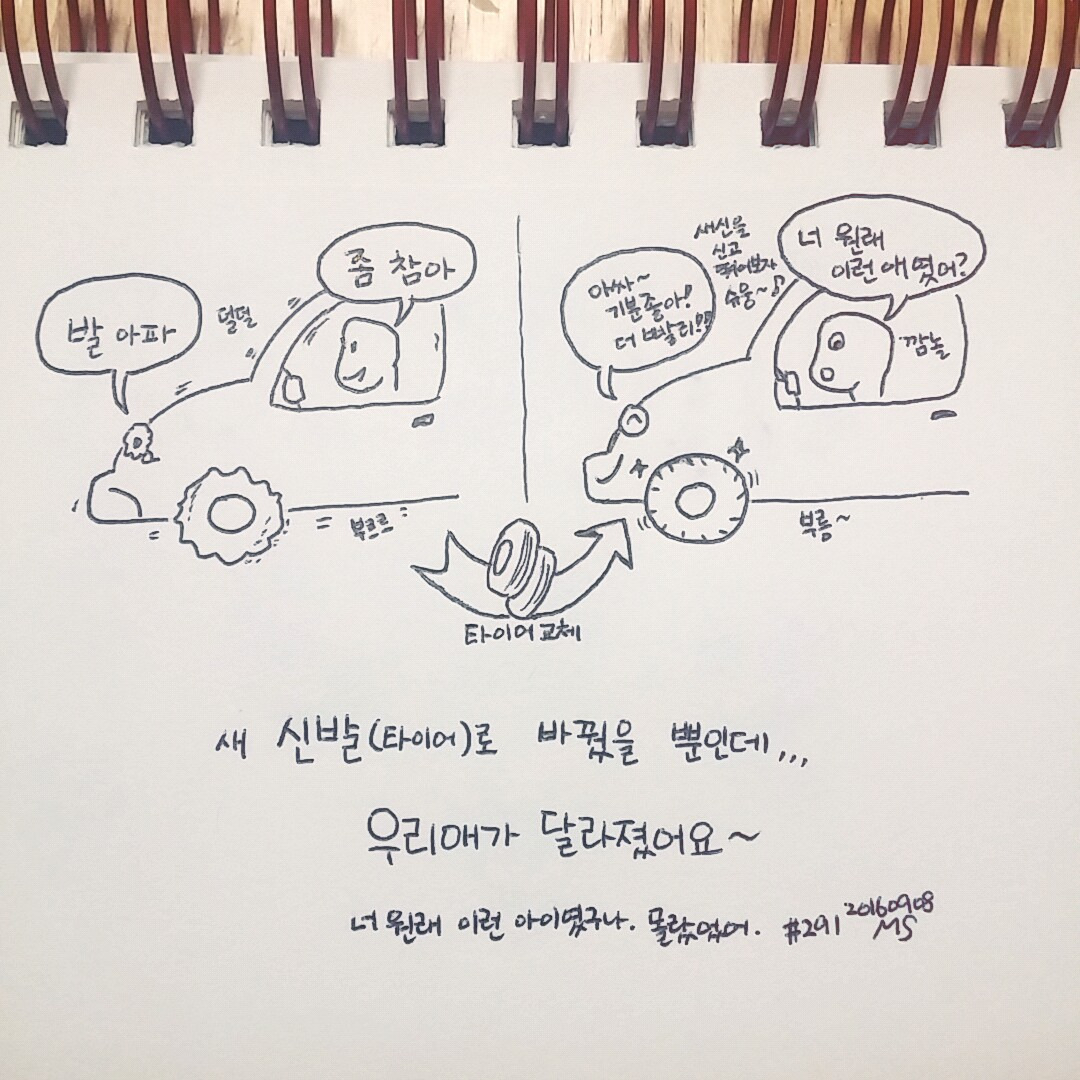 발 아파
덜덜
좀 참아
부르르
아싸~
기분좋아!
더 빨리!!?
새신을
신고
뛰어보자
슈웅~♪
너 원래
이런 애였어?
깜놀
부릉~
타이어 교체
새 신발(타이어)로 바꿨을 뿐인데,,,
우리애가 달라졌어요~
너 원래 이런 아이였구나. 몰랐었어. #291 20160908
MS